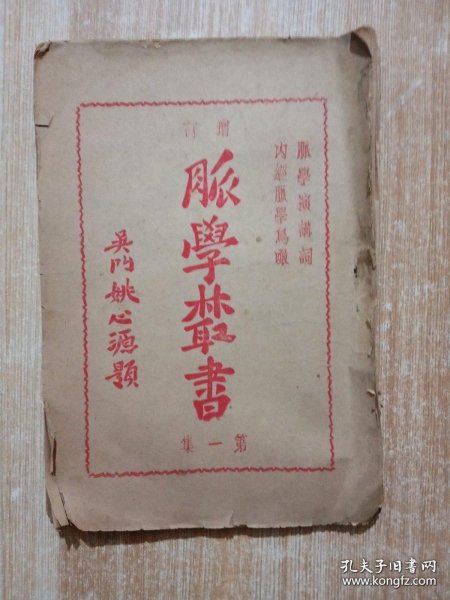 脈學演講詞
內經脈學爲
增訂
脈學叢書
第一集
吳門姚心源題
孔夫子旧书网
www.kongfz.com